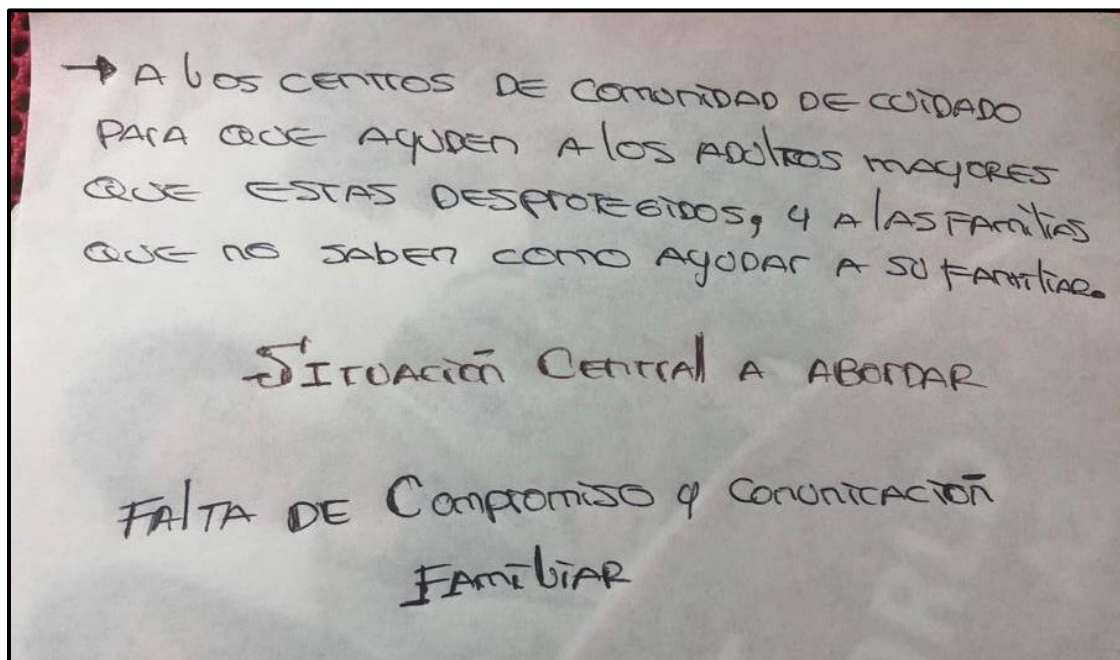 → A los centros DE comuniDAD DE cuiDADO
PArA QUE AyuDEn A los ADultos mAyORES
QUE ESTAS DESprotEGiDOS, y A lAS FAmiliAs
QUE no SABEn como AyuDAr A su FAmiliAR.
SITUAción CEntrAl A ABOrDAR
FAlTA DE Compromiso y comunicAción
FAmiliAR